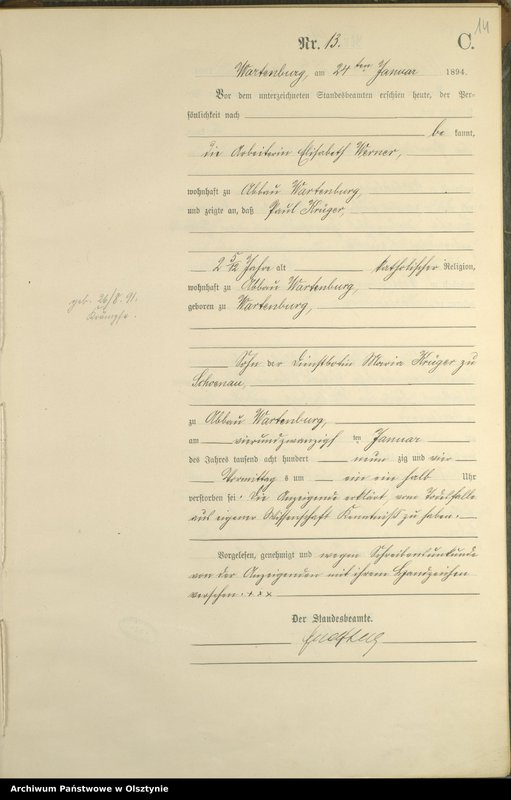 14
Nr. 13. C.
Wartenburg, am 24ten Januar 1894.
Vor dem unterzeichneten Standesbeamten erschien heute, der Per-
sönlichkeit nach
be kannt,
die Arbeiterin Elisabeth Werner,
wohnhaft zu Abbau Wartenburg,
und zeigte an, daß Paul Krüger,
2 5/12 Jahre alt katholischer Religion,
wohnhaft zu Abbau Wartenburg,
geb. 26/8. 91.
Krämpfe.
geboren zu Wartenburg,
Sohn der Dienstbotin Maria Krüger zu
Schoenau,
zu Abbau Wartenburg,
am vierundzwanzigsten Januar
des Jahres tausend acht hundert neun zig und vier
Vormittag s um ein ein halb Uhr
verstorben sei. Die Anzeigende erklärt, vom Todesfalle
aus eigener Wissenschaft Kenntniß zu haben.
Vorgelesen, genehmigt und wegen Schreibensunkunde
von der Anzeigenden mit ihrem Handzeichen
versehen. + x x
Der Standesbeamte.
Archiwum Państwowe w Olsztynie